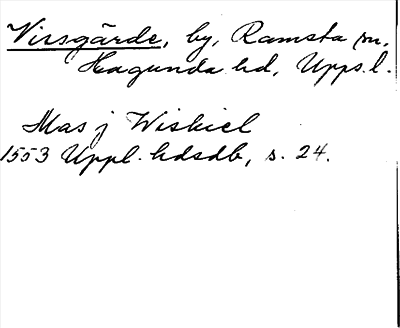 Virsgärde, by, Ramsta sn,
Hagunda hd, Upps. l.
Mas j Wiskiel
1553 Uppl. hdsdb, s. 24.